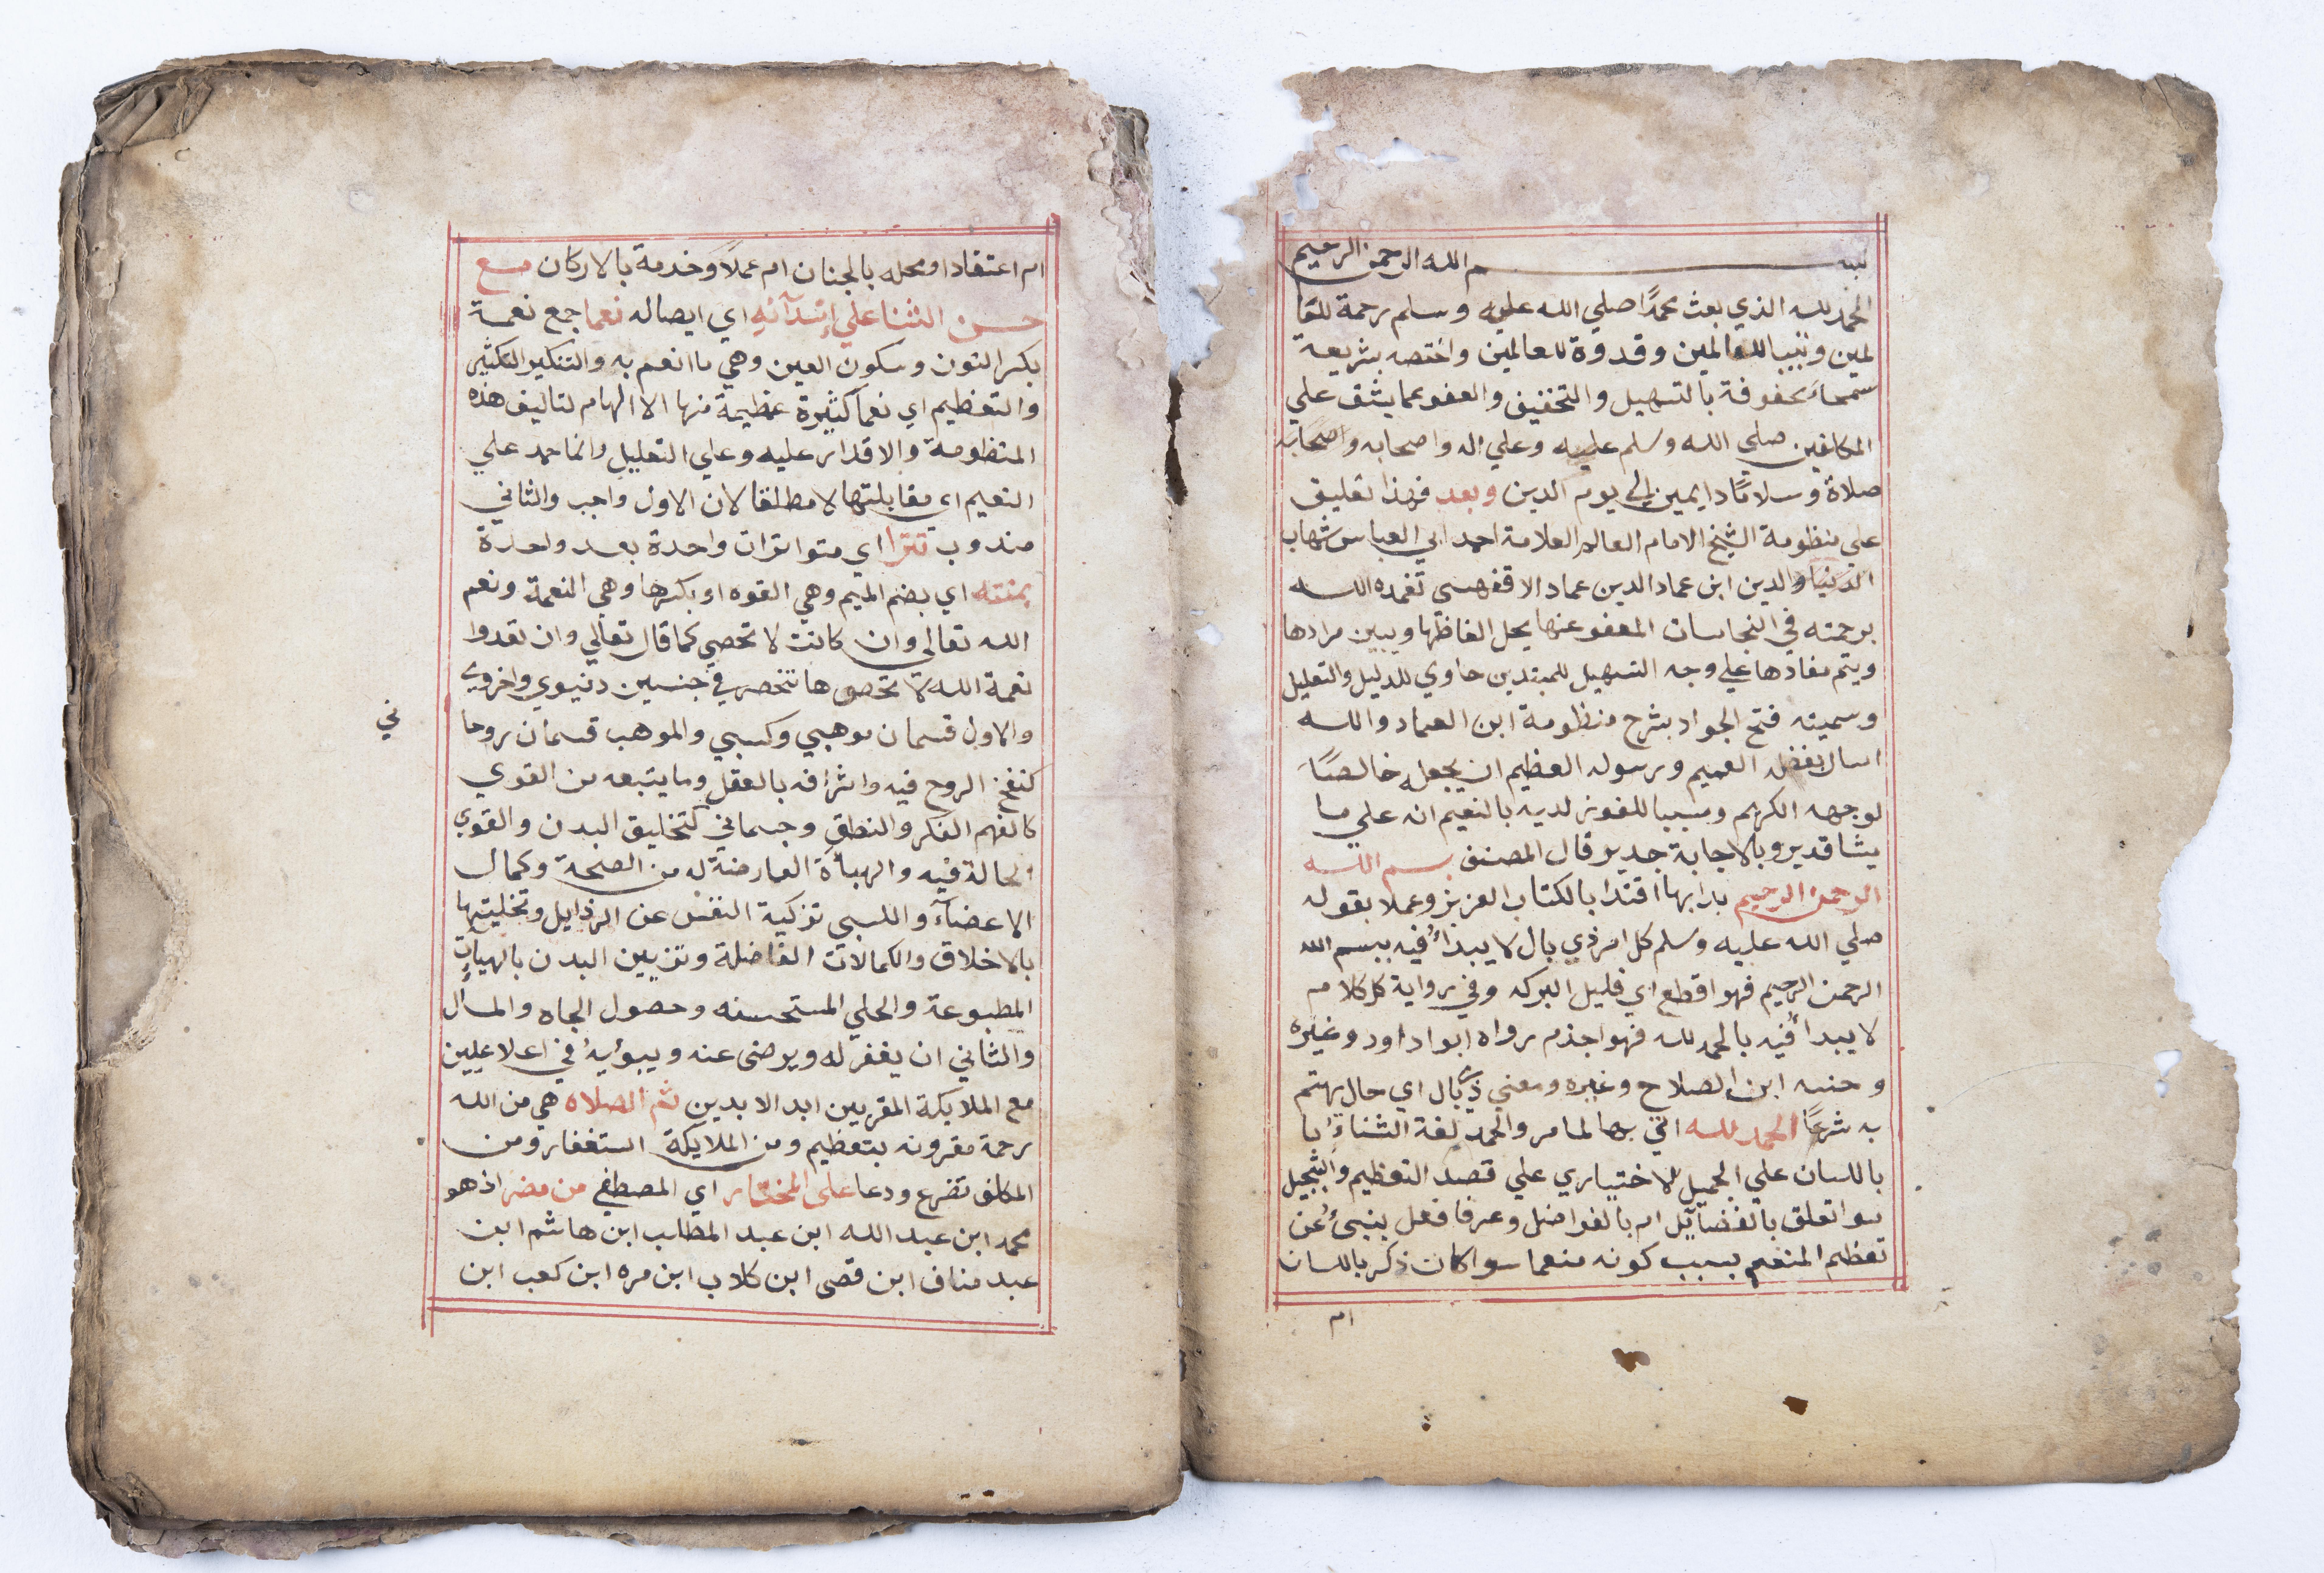 بسم الله الرحمن الرحيم
الحمد لله الذي بعث محمدًا صلي الله عليه وسلم رحمة للعا
لمين ونبيا للعالمين وقدوة للعالمين واختصه بشريعة
سمحاء محفوفة بالتسهيل والتخفيف والعفو عما يشق علي
المكلفين صلي الله وسلم عليه وعلي اله واصحابه واصحابه
صلاة وسلامًا دايمين الي يوم الدين وبعد فهذا تعليق
علي منظومة الشيخ الامام العالم العلامة احمد ابي العباس شهاب
الدنيا والدين ابن عماد الدين عماد الاقفهسي تغمده الله
برحمته في النجاسات المعفو عنها يحل الفاظها ويبين مرادها
ويتم مفادها علي وجه التسهيل للمبتدين حاوي للدليل والتعليل
وسميته فتح الجواد بشرح منظومة ابن العماد والله
اسال بفضله العميم ورسوله العظيم ان يجعله خالصًا
لوجهه الكريم ومسببا للفوز لديه بالنعيم انه علي ما
يشا قدير وبالاجابة جدير قال المصنف بسم الله
الرحمن الرحيم بدا بها اقتدا بالكتاب العزيز وعملا بقوله
صلي الله عليه وسلم كل امر ذي بال لا يبدأ فيه ببسم الله
الرحمن الرحيم فهو اقطع اي قليل البركه وفي رواية كل كلام
لا يبدأ فيه بالحمد لله فهو اجذم رواه ابوا داود وغيره
وحسنه ابن الصلاح وغيره ومعني ذي بال اي حال يهتم
به شرعًا الحمد لله اتي بها لما مر والحمد لغة الثناء با
باللسان علي الجميل للاختياري علي قصد التعظيم والتبجيل
سوا تعلق بالفضآيل ام بالفواضل وعرفا فعل ينبئ عن
تعظيم المنعم بسبب كونه منعما سوا كان ذكر باللسان
ام
ام اعتقادا ومحله بالجنان ام عملاً وخدمة بالاركان مع
حسن الثنا علي إسدآئه اي ايصاله نعما جمع نعمة
بكسر النون وسكون العين وهي ما انعم به والتنكير للتكثير
والتعظيم اي نعما كثيرة عظيمة منها الا الهام لتاليف هذه
المنظومة والاقدار عليه وعلي التعليل وانما حمد علي
النعيم اي مقابلتها لا مطلقا لان الاول واجب والثاني
مندوب تترا اي متواترات واحدة بعد واحدة
بمنته اي بضم الميم وهي القوه او بكسرها وهي النعمة ونعم
الله تعالي وان كانت لا تحصي كما قال تعالي وان تعدوا
نعمة الله لا تحصوها تنحصر في جنسين دنيوي واخروي
والاول قسمان موهبي وكسبي والموهب قسمان روحا
ني
كنفخ الروح فيه واشرافه بالعقل وما يتبعه من القوي
كالفهم الفكر والنطق وجسماني كتخليق البدن والقوي
الحالة فيه والهيأة العارضة له من الصحة وكمال
الاعضآء والكسبي تزكية النفس عن الرذايل وتخليتها
بالاخلاق والكمالات الفاضلة وتزيين البدن بالهيات
المطبوعة والحلي المستحسنه وحصول الجاه والمال
والثاني ان يغفر له ويرضي عنه ويبوئه في اعلا عليين
مع الملايكة المقربين ابد الابدين ثم الصلاه هي من الله
رحمة مقرونه بتعظيم ومن الملايكة استغفار ومن
المكلف تضرع ودعا علي المختار اي المصطفي من مضر اذ هو
محمد ابن عبد الله ابن عبد المطلب ابن هاشم ابن
عبد مناف ابن قصي ابن كلاب ابن مره ابن كعب ابن